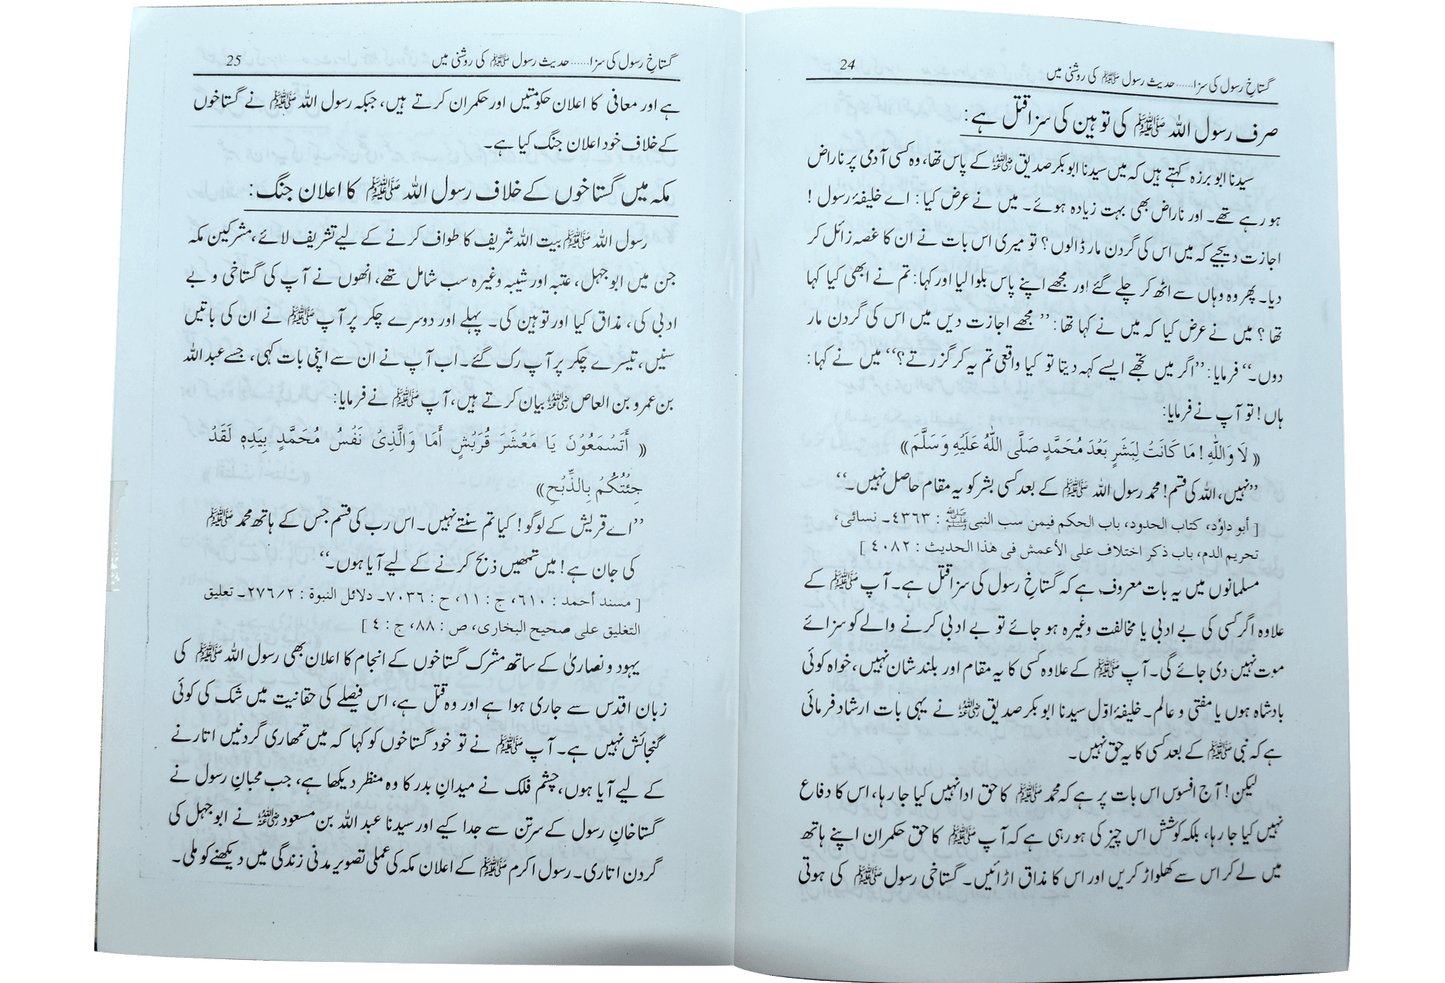 گستاخِ رسول کی سزا......حدیث رسول ﷺ کی روشنی میں 24
صرف رسول اللہ ﷺ کی توہین کی سزا قتل ہے:
سیدنا ابو برزہ کہتے ہیں کہ میں سیدنا ابوبکر صدیق رضی اللہ عنہ کے پاس تھا، وہ کسی آدمی پر ناراض
ہو رہے تھے۔ اور ناراض بھی بہت زیادہ ہوئے۔ میں نے عرض کیا: اے خلیفۂ رسول !
اجازت دیجیے کہ میں اس کی گردن مار ڈالوں؟ تو میری اس بات نے ان کا غصہ زائل کر
دیا۔ پھر وہ وہاں سے اٹھ کر چلے گئے اور مجھے اپنے پاس بلوا لیا اور کہا: تم نے ابھی کیا کہا
تھا؟ میں نے عرض کیا کہ میں نے کہا تھا: ’’ مجھے اجازت دیں میں اس کی گردن مار
دوں۔‘‘ فرمایا: ’’اگر میں تجھے ایسے کہہ دیتا تو کیا واقعی تم یہ کر گزرتے؟‘‘ میں نے کہا:
ہاں! تو آپ نے فرمایا:
« لَا وَاللّٰهِ ! مَا كَانَتْ لِبَشَرٍ بَعْدَ مُحَمَّدٍ صَلَّى اللّٰهُ عَلَيْهِ وَسَلَّمَ »
’’نہیں، اللہ کی قسم! محمد رسول اللہ ﷺ کے بعد کسی بشر کو یہ مقام حاصل نہیں۔‘‘
[ أبو داوٗد، کتاب الحدود، باب الحکم فیمن سب النبی ﷺ : ٤٣٦٣۔ نسائی،
تحریم الدم، باب ذکر اختلاف علی الأعمش فی هذا الحدیث : ٤٠٨٢ ]
مسلمانوں میں یہ بات معروف ہے کہ گستاخِ رسول کی سزا قتل ہے۔ آپ ﷺ کے
علاوہ اگر کسی کی بے ادبی یا مخالفت وغیرہ ہو جائے تو بے ادبی کرنے والے کو سزائے
موت نہیں دی جائے گی۔ آپ ﷺ کے علاوہ کسی کا یہ مقام اور بلند شان نہیں، خواہ کوئی
بادشاہ ہوں یا مفتی و عالم۔ خلیفۂ اوّل سیدنا ابوبکر صدیق رضی اللہ عنہ نے یہی بات ارشاد فرمائی
ہے کہ نبی ﷺ کے بعد کسی کا یہ حق نہیں۔
لیکن! آج افسوس اس بات پر ہے کہ محمد ﷺ کا حق ادا نہیں کیا جا رہا، اس کا دفاع
نہیں کیا جا رہا، بلکہ کوشش اس چیز کی ہو رہی ہے کہ آپ ﷺ کا حق حکمران اپنے ہاتھ
میں لے کر اس سے کھلواڑ کریں اور اس کا مذاق اڑائیں۔ گستاخی رسول ﷺ کی ہوتی
گستاخِ رسول کی سزا......حدیث رسول ﷺ کی روشنی میں 25
ہے اور معافی کا اعلان حکومتیں اور حکمران کرتے ہیں، جبکہ رسول اللہ ﷺ نے گستاخوں
کے خلاف خود اعلان جنگ کیا ہے۔
مکہ میں گستاخوں کے خلاف رسول اللہ ﷺ کا اعلان جنگ:
رسول اللہ ﷺ بیت اللہ شریف کا طواف کرنے کے لیے تشریف لائے، مشرکین مکہ
جن میں ابو جہل، عتبہ اور شیبہ وغیرہ سب شامل تھے، انھوں نے آپ کی گستاخی و بے
ادبی کی، مذاق کیا اور توہین کی۔ پہلے اور دوسرے چکر پر آپ ﷺ نے ان کی باتیں
سنیں، تیسرے چکر پر آپ رک گئے۔ اب آپ نے ان سے اپنی بات کہی، جسے عبد اللہ
بن عمرو بن العاص رضی اللہ عنہ بیان کرتے ہیں، آپ ﷺ نے فرمایا:
« أَتَسْمَعُوْنَ يَا مَعْشَرَ قُرَيْشٍ أَمَا وَالَّذِىْ نَفْسُ مُحَمَّدٍ بِيَدِهِ لَقَدْ
جِئْتُكُمْ بِالذِّبْحِ »
’’اے قریش کے لوگو! کیا تم سنتے نہیں۔ اس رب کی قسم جس کے ہاتھ محمد ﷺ
کی جان ہے! میں تمھیں ذبح کرنے کے لیے آیا ہوں۔‘‘
[ مسند أحمد : ٦١٠، ج : ١١، ح : ٧٠٣٦۔ دلائل النبوة : ٢٧٦/٢۔ تعلیق
التغلیق علی صحیح البخاری، ص : ٨٨، ج : ٤ ]
یہود و نصاریٰ کے ساتھ مشرک گستاخوں کے انجام کا اعلان بھی رسول اللہ ﷺ کی
زبان اقدس سے جاری ہوا ہے اور وہ قتل ہے، اس فیصلے کی حقانیت میں شک کی کوئی
گنجائش نہیں ہے۔ آپ ﷺ نے تو خود گستاخوں کو کہا کہ میں تمھاری گردنیں اتارنے
کے لیے آیا ہوں، چشم فلک نے میدانِ بدر کا وہ منظر دیکھا ہے، جب محبانِ رسول نے
گستاخانِ رسول کے سر تن سے جدا کیے اور سیدنا عبد اللہ بن مسعود رضی اللہ عنہ نے ابو جہل کی
گردن اتاری۔ رسول اکرم ﷺ کے اعلان مکہ کی عملی تصویر مدنی زندگی میں دیکھنے کو ملی۔